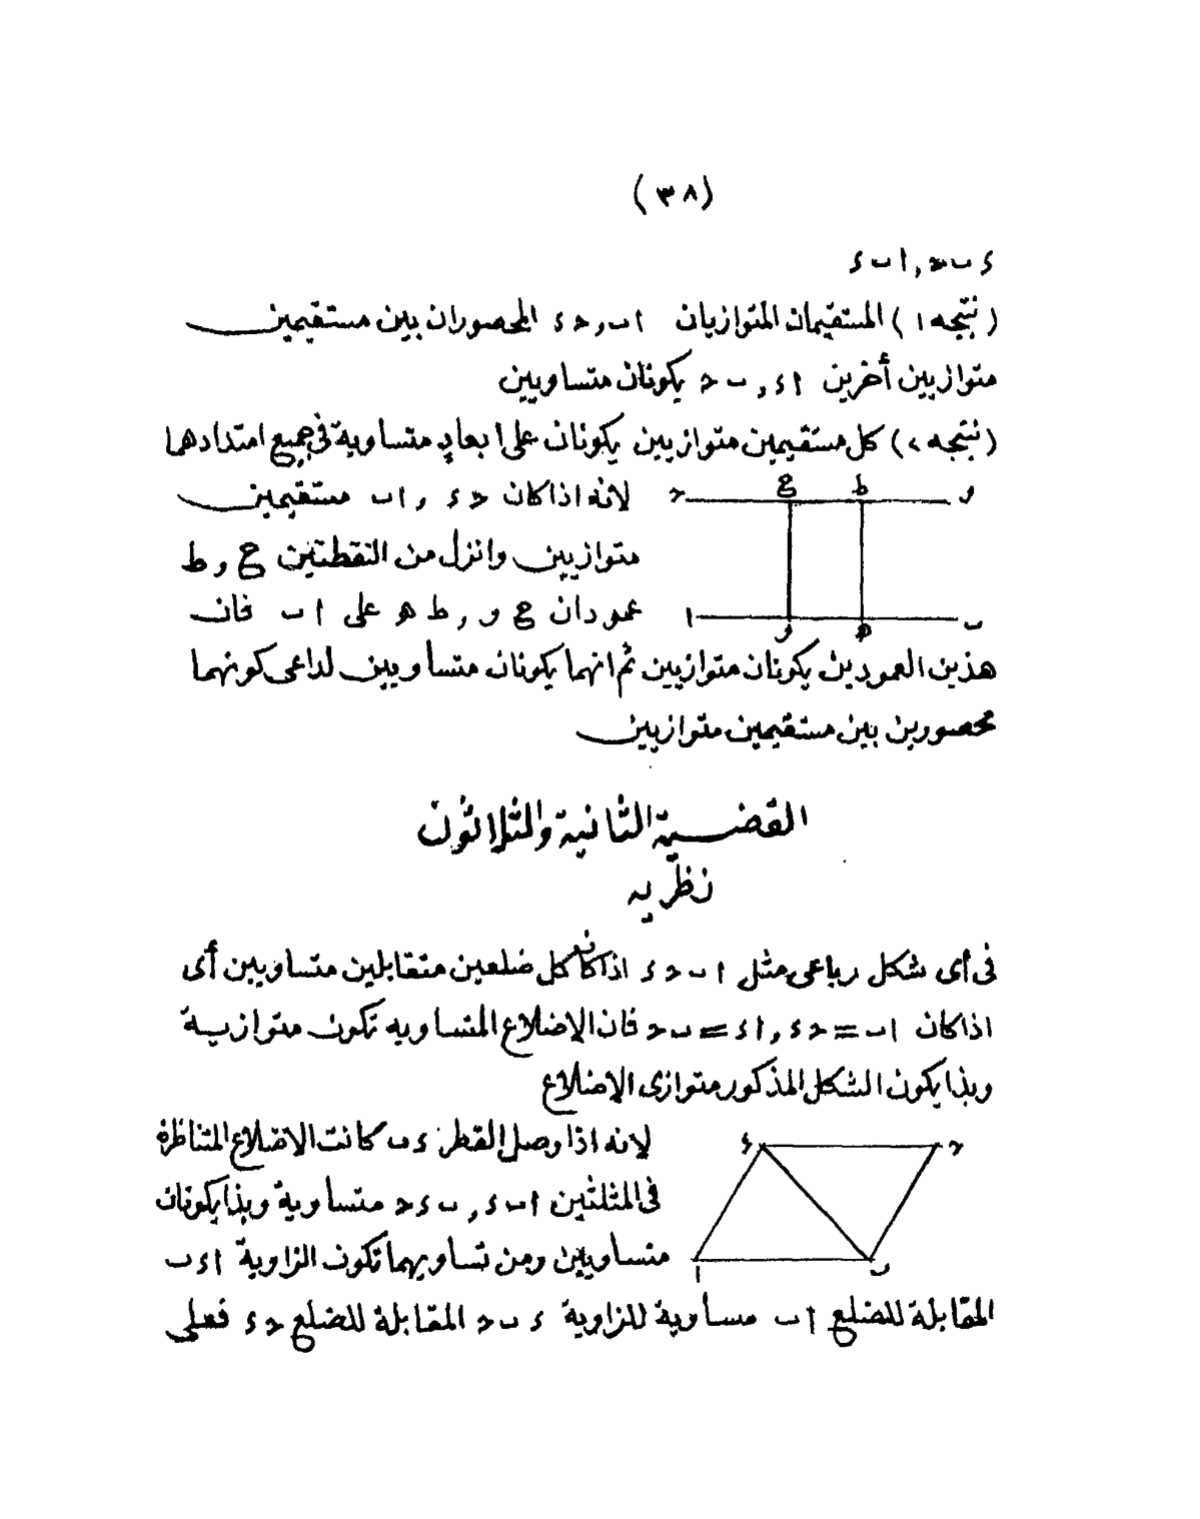 (٣٨)
د ب ح , ا ب د
(نتيجه ١) المستقيمان المتوازيان ا ب , ح د المحصوران بين مستقيمين
متوازيين أخرين ا د , ب ح يكونان متساويين
(نتيجه ٢) كل مستقيمين متوازيين يكونان على ابعاد متساوية في جميع امتدادهما
لانه اذا كان ح د , ا ب مستقيمين
متوازيين وانزل من النقطتين ع , ط
عمودان ع و , ط ه على ا ب فان
ح ع ط د
ا و ه ب
هذين العمودين يكونان متوازيين ثم انهما يكونان متساويين لداعى كونهما
محصورين بين مستقيمين متوازيين
القضية الثانية والثلاثون
نظريه
فى أى شكل رباعى مثل ا ب ح د اذا كانع كل ضلعين متقابلين متساويين أى
اذا كان ا ب = ح د , ا د = ب ح فان الاضلاع المتساويه تكون متوازية
وبذا يكون الشكل المذكور متوازى الاضلاع
لانه اذا وصل القطر د ب كانت الاضلاع المتناظرة
فى المثلثين ا ب د , ب د ح متساوية وبذا يكونان
متساويين ومن تساويهما تكون الزاوية ا د ب
د ح
ا ب
المقابلة للضلع ا ب مساوية للزاوية د ب ح المقابلة للضلع ح د فعلى